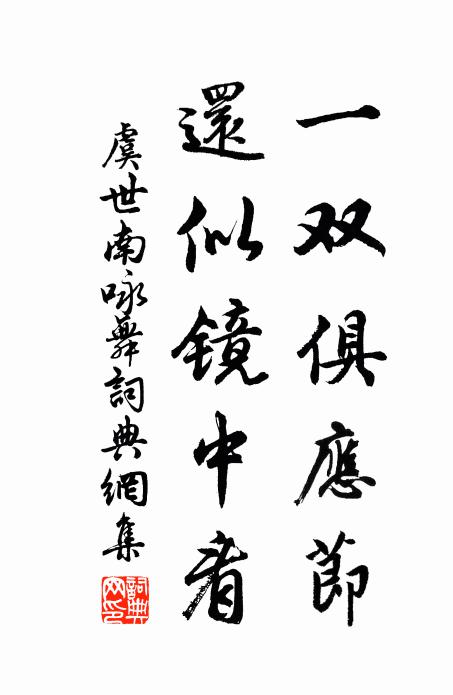 一双俱應節
還似鏡中看
虞世南咏舞詞典網集
詞典网印